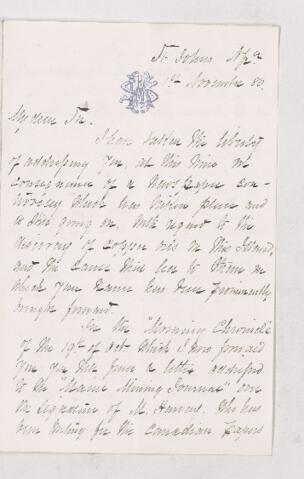 St. Johns
1st November 80.
My dear Sir.
I have taken the liberty
of addressing you, at this time in
consequence of a Newspaper con-
troversy which has taken place and
is still going on, with regard to the
discovery of copper ore in this Island,
and the cause
which your name has been prominently
brought forward.
In the "Morning Chronicle"
of the 19th of Oct. which I now forward
you you will find a letter addressed
to the "Maine Mining Journal" over
the signature of M. Harvey. Who has
been writing for the Canadian Papers